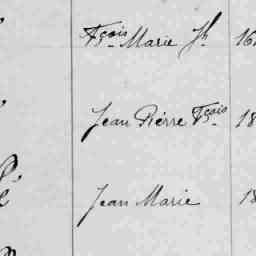 Fçois Marie Jh 16
Jean Pierre Fçois 18
Jean Marie 18